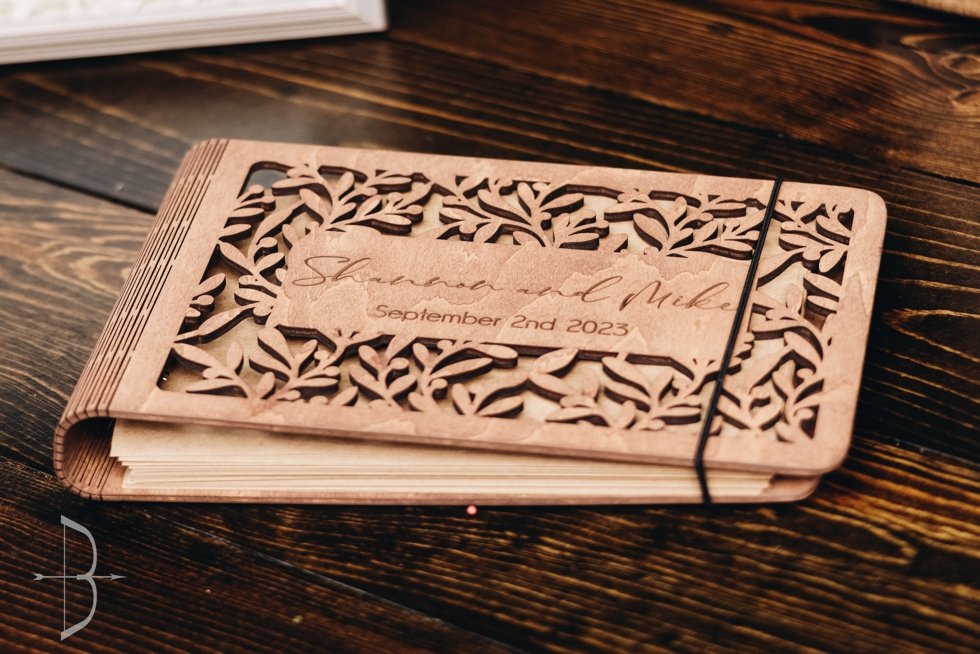 Shannon and Mike
September 2nd 2023
B